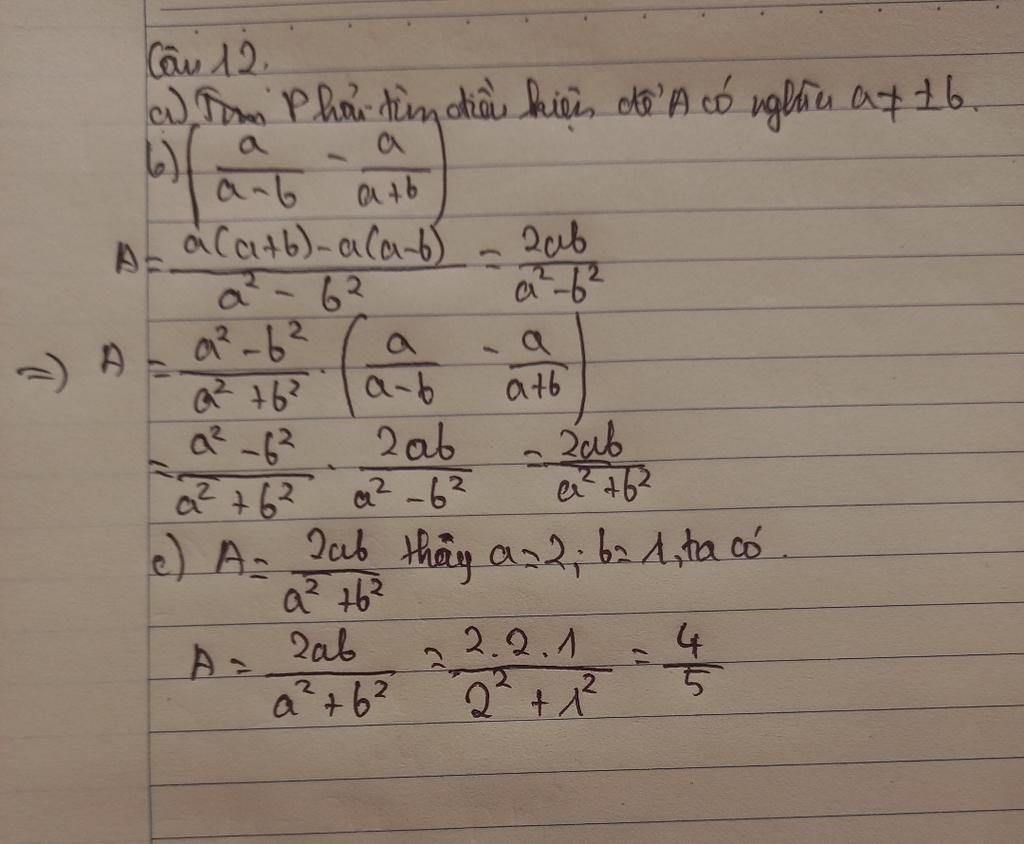 Câu 12.
a) Tìm Phải tìm điều kiện để A có nghĩa a ≠ ±b.
b) ( a/(a-b) - a/(a+b) )
A = (a(a+b) - a(a-b))/(a² - b²) = 2ab/(a² - b²)
=> A = (a² - b²)/(a² + b²) . ( a/(a-b) - a/(a+b) )
= (a² - b²)/(a² + b²) . 2ab/(a² - b²) = 2ab/(a² + b²)
c) A = 2ab/(a² + b²) thay a = 2; b = 1, ta có.
A = 2ab/(a² + b²) = (2.2.1)/(2² + 1²) = 4/5